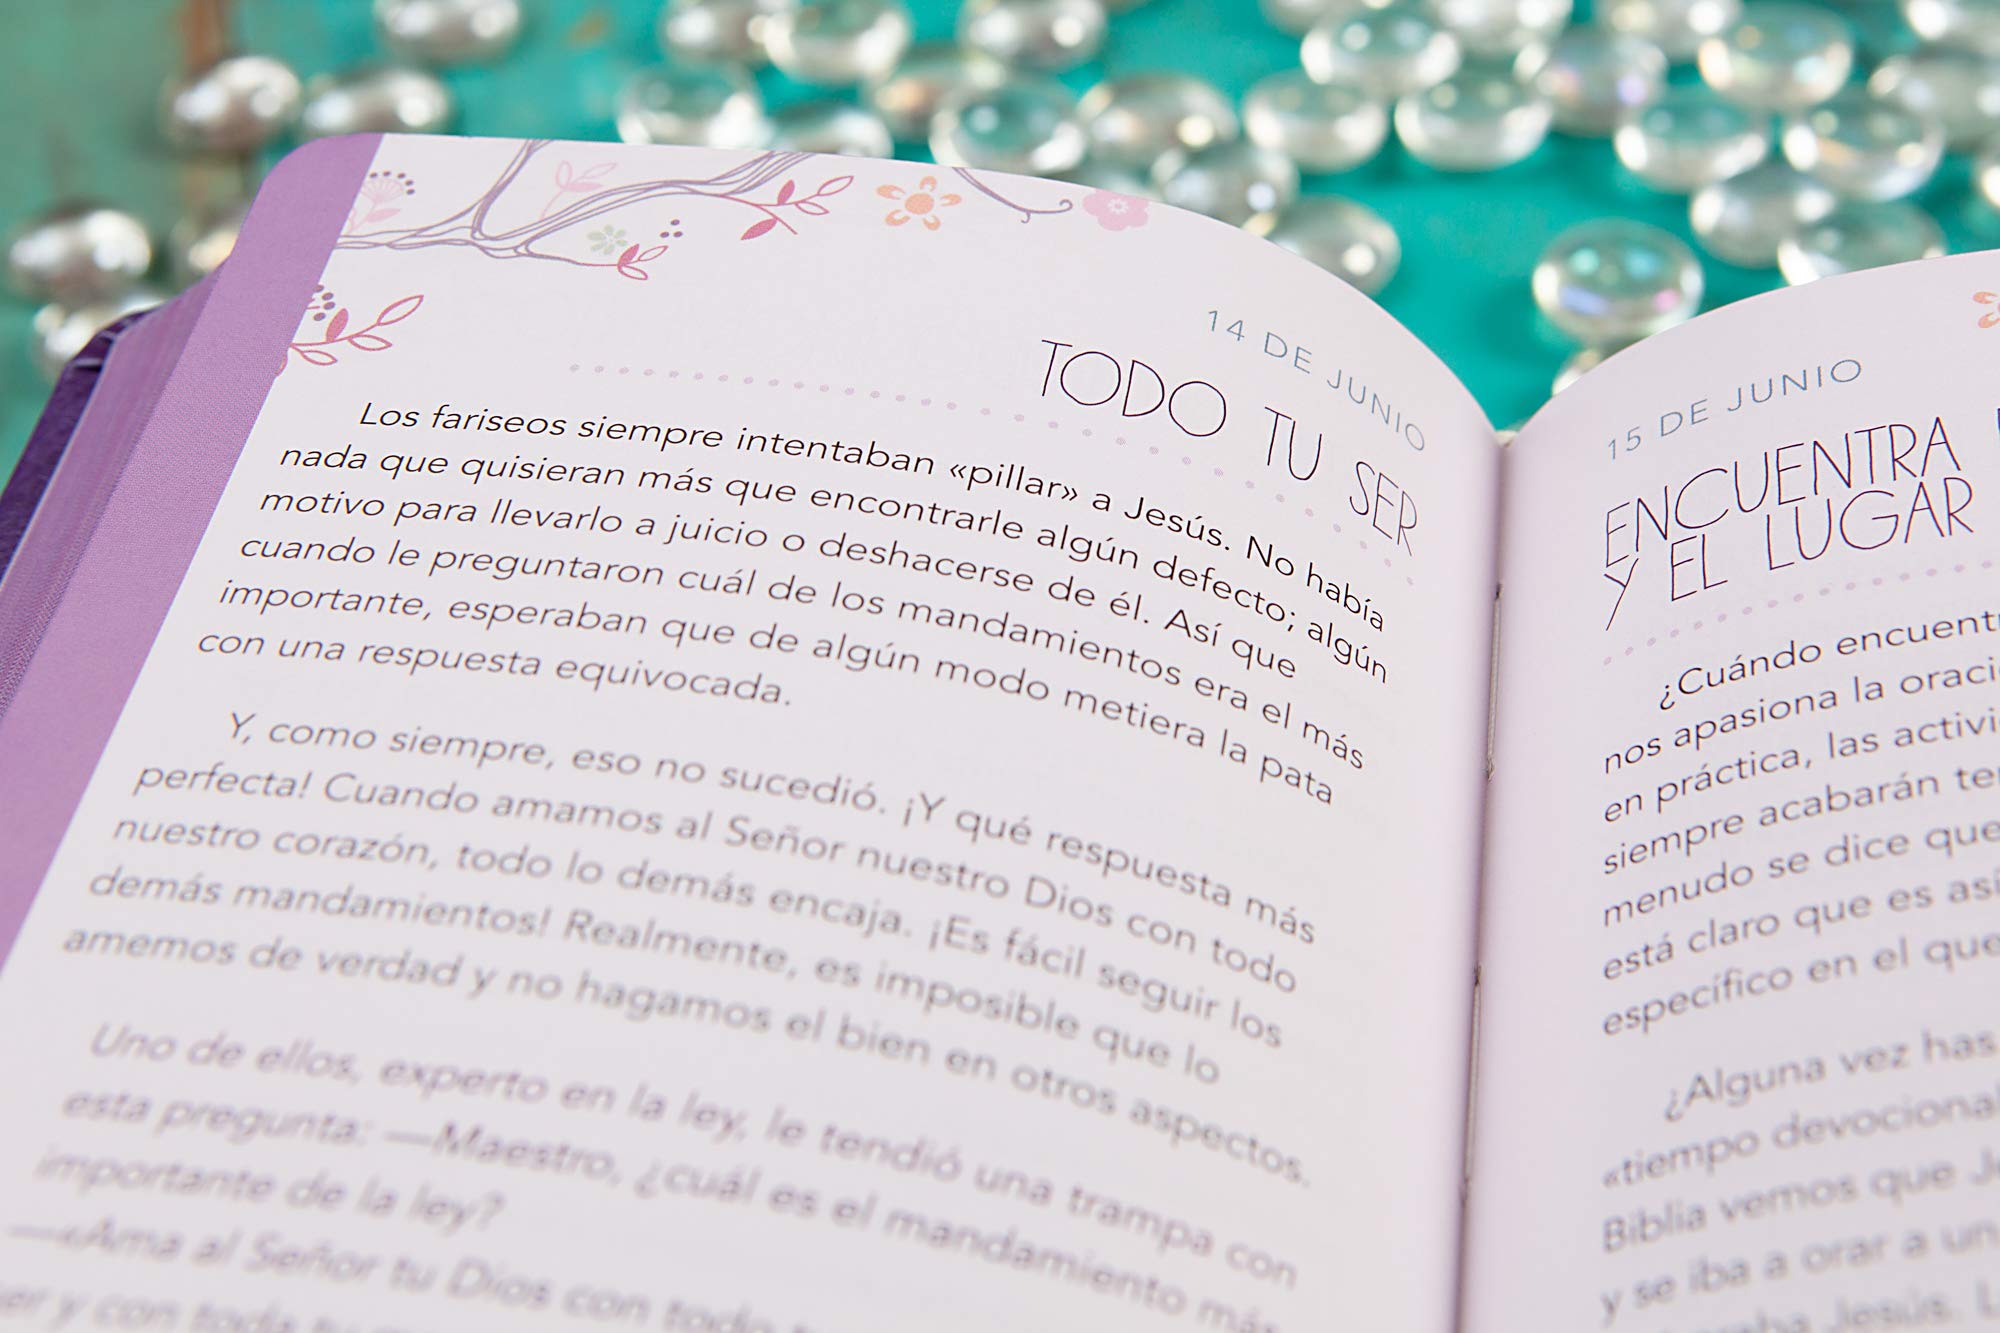 14 DE JUNIO
TODO TU SER
Los fariseos siempre intentaban «pillar» a Jesús. No había
nada que quisieran más que encontrarle algún defecto; algún
motivo para llevarlo a juicio o deshacerse de él. Así que
cuando le preguntaron cuál de los mandamientos era el más
importante, esperaban que de algún modo metiera la pata
con una respuesta equivocada.
Y, como siempre, eso no sucedió. ¡Y qué respuesta más
perfecta! Cuando amamos al Señor nuestro Dios con todo
nuestro corazón, todo lo demás encaja. ¡Es fácil seguir los
demás mandamientos! Realmente, es imposible que lo
amemos de verdad y no hagamos el bien en otros aspectos.
Uno de ellos, experto en la ley, le tendió una trampa con
esta pregunta: —Maestro, ¿cuál es el mandamiento más
importante de la ley?
—«Ama al Señor tu Dios con todo
y con toda tu
15 DE JUNIO
ENCUENTRA
Y EL LUGAR
¿Cuándo
nos apasiona la
en práctica, las
siempre acabarán
menudo se dice que
está claro que es así
específico en el que
¿Alguna vez has
«tiempo devocional
Biblia vemos que
y se iba a orar a un
Jesús.